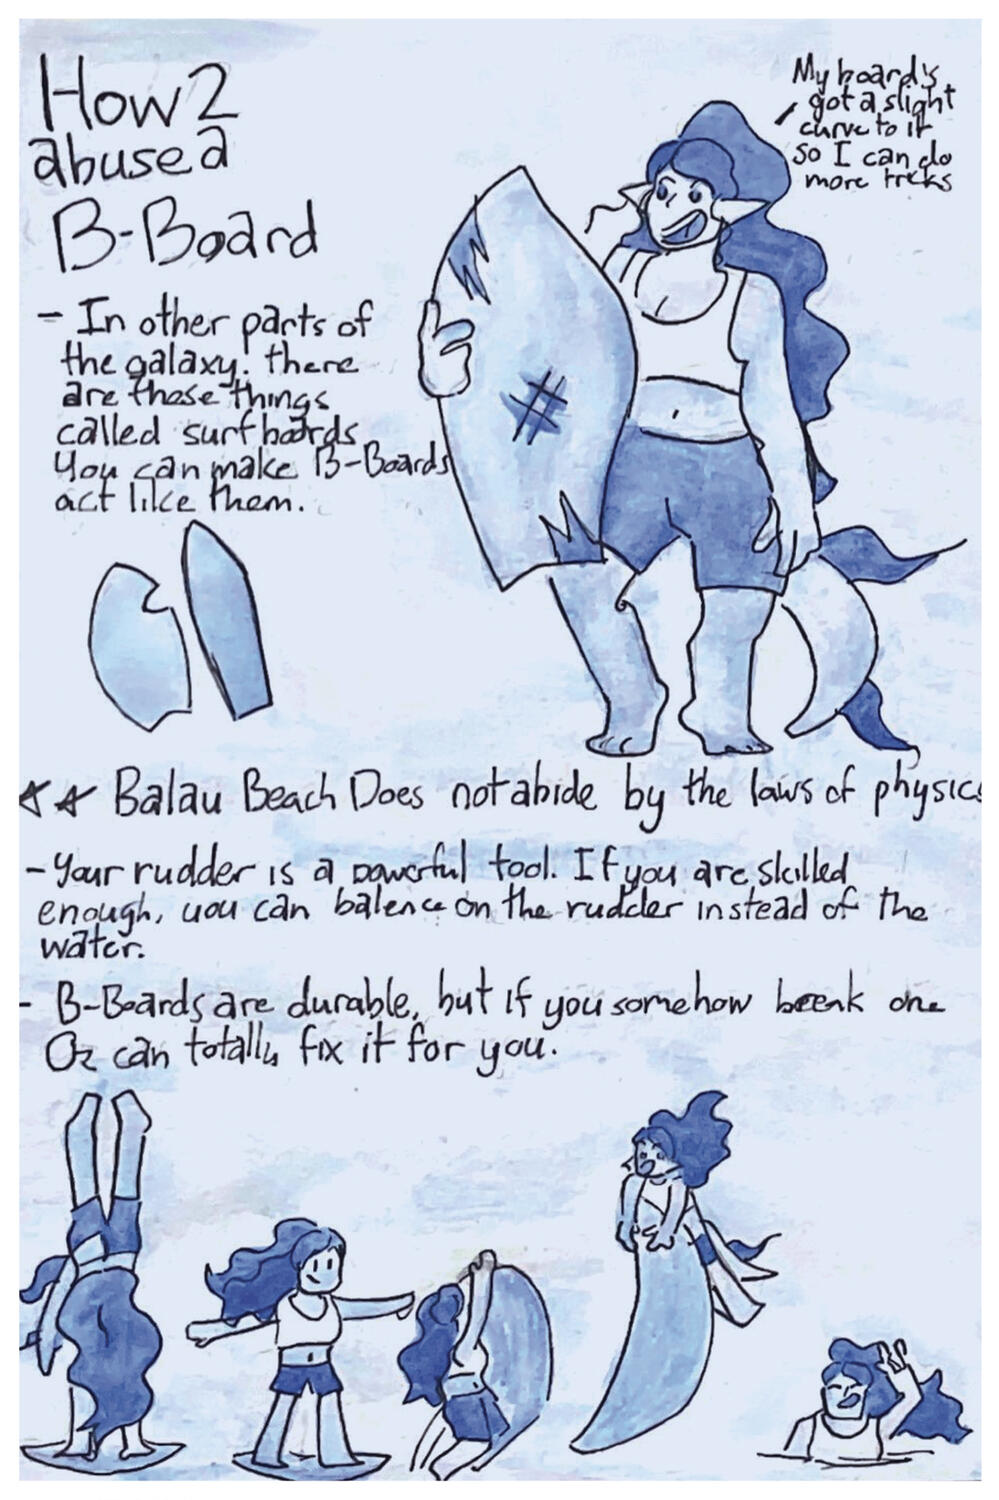 How 2
abuse a
B-Board
My board's
got a slight
curve to it
so I can do
more tricks
- In other parts of
the galaxy! there
are these things
called surfboards
You can make B-Boards
act like them.
★★ Balau Beach Does not abide by the laws of physics
- Your rudder is a powerful tool. If you are skilled
enough, you can balence on the rudder instead of the
water.
- B-Boards are durable, but if you somehow break one
Oz can totally fix it for you.